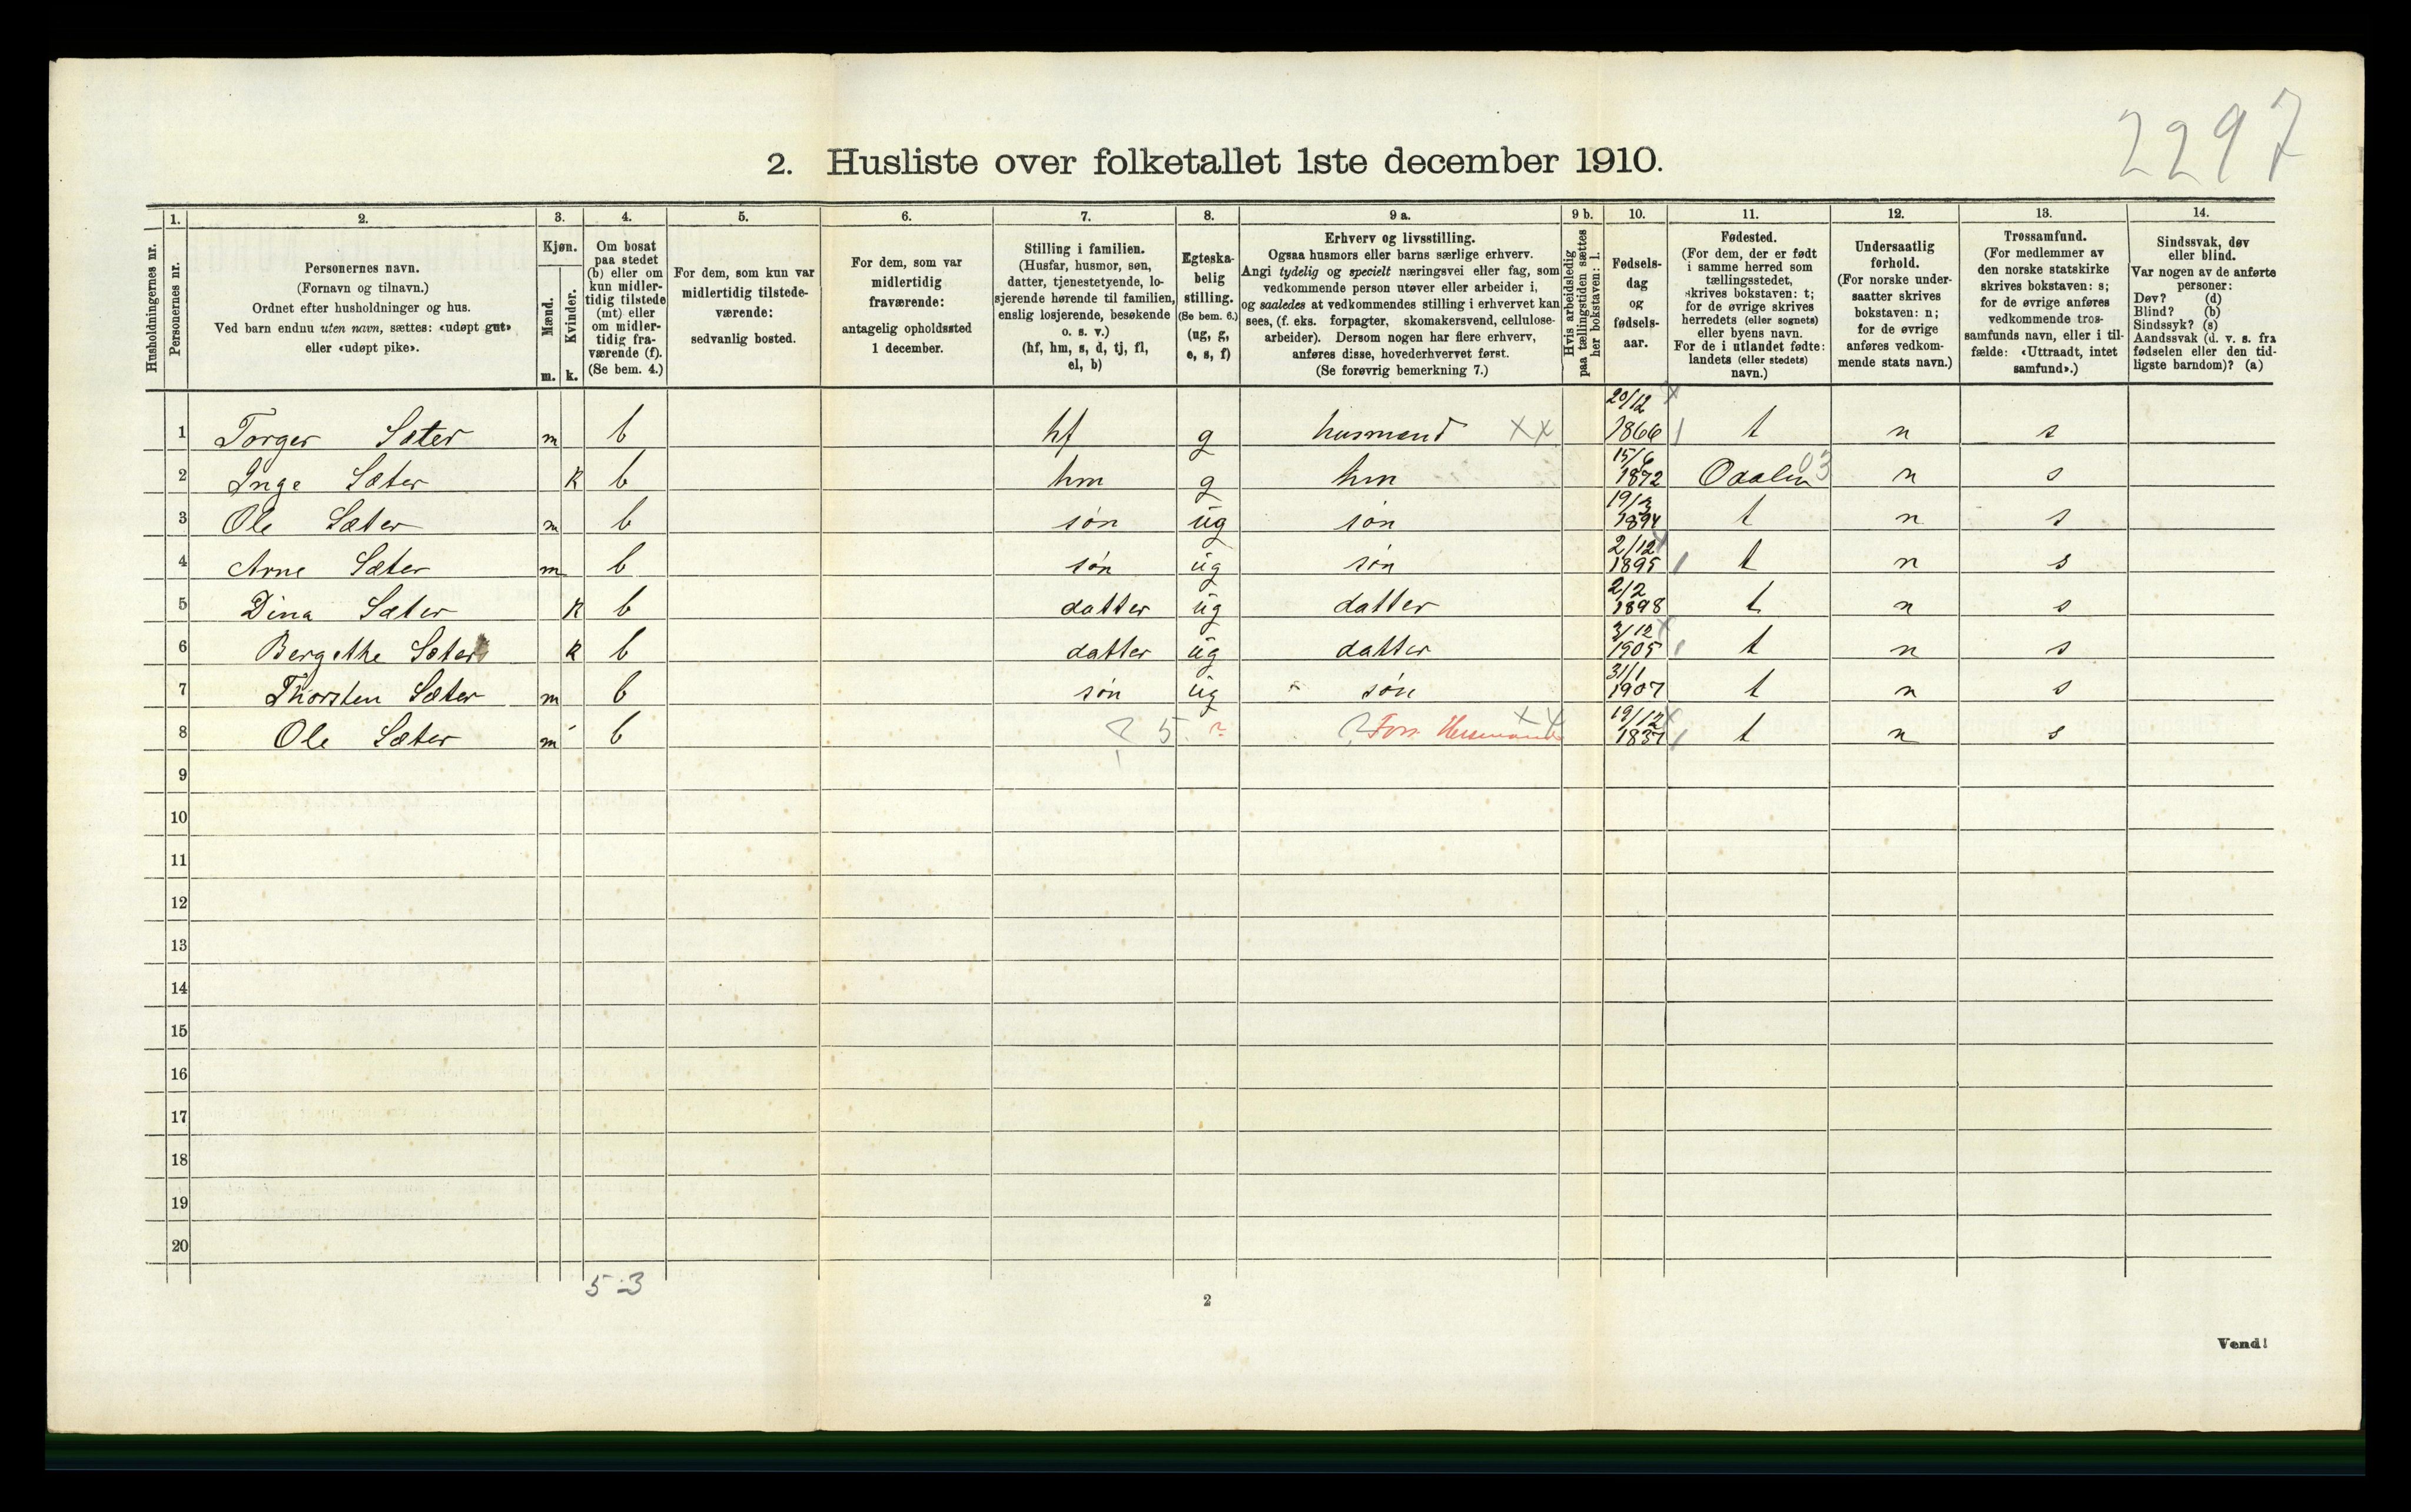 2297
2. Husliste over folketallet 1ste december 1910.
Husholdningernes nr.
1. Personernes nr.
2. Personernes navn.
(Fornavn og tilnavn.)
Ordnet efter husholdninger og hus.
Ved barn endnu uten navn, sættes: «udøpt gut»
eller «udøpt pike».
3. Kjøn.
Mænd. m.
Kvinder. k.
4. Om bosat
paa stedet
(b) eller om
kun midler-
tidig tilstede
(mt) eller
om midler-
tidig fra-
værende (f).
(Se bem. 4.)
5. For dem, som kun var
midlertidig tilstede-
værende:
sedvanlig bosted.
6. For dem, som var
midlertidig
fraværende:
antagelig opholdssted
1 december.
7. Stilling i familien.
(Husfar, husmor, søn,
datter, tjenestetyende, lo-
sjerende hørende til familien,
enslig losjerende, besøkende
o. s. v.)
(hf, hm, s, d, tj, fl,
el, b)
8. Egteska-
belig
stilling.
(Se bem. 6.)
(ug, g,
e, s, f)
9 a. Erhverv og livsstilling.
Ogsaa husmors eller barns særlige erhverv.
Angi tydelig og specielt næringsvei eller fag, som
vedkommende person utøver eller arbeider i,
og saaledes at vedkommendes stilling i erhvervet kan
sees, (f. eks. forpagter, skomakersvend, cellulose-
arbeider). Dersom nogen har flere erhverv,
anføres disse, hovederhvervet først.
(Se forøvrig bemerkning 7.)
9 b. Hvis arbeidsledig
paa tællingstiden sættes
her bokstaven: l.
10. Fødsels-
dag
og
fødsels-
aar.
11. Fødested.
(For dem, der er født
i samme herred som
tællingsstedet,
skrives bokstaven: t;
for de øvrige skrives
herredets (eller sognets)
eller byens navn.
For de i utlandet fødte:
landets (eller stedets)
navn.)
12. Undersaatlig
forhold.
(For norske under-
saatter skrives
bokstaven: n;
for de øvrige
anføres vedkom-
mende stats navn.)
13. Trossamfund.
(For medlemmer av
den norske statskirke
skrives bokstaven: s;
for de øvrige anføres
vedkommende tros-
samfunds navn, eller i til-
fælde: «Uttraadt, intet
samfund».)
14. Sindssvak, døv
eller blind.
Var nogen av de anførte
personer:
Døv? (d)
Blind? (b)
Sindssyk? (s)
Aandssvak (d. v. s. fra
fødselen eller den tid-
ligste barndom)? (a)
1 Torger Sæter m b hf g husmand XX 20/12 1866 t n s
2 Inge Sæter k b hm g hm 15/6 1872 Odalen 03 n s
3 Ole Sæter m b søn ug søn 19/3 1894 t n s
4 Arne Sæter m b søn ug søn 2/12 1895 t n s
5 Dina Sæter k b datter ug datter 2/2 1898 t n s
6 Bergithe Sæter k b datter ug datter 3/12 1905 t n s
7 Thorsten Sæter m b søn ug søn 31/1 1907 t n s
8 Ole Sæter m b ? 5 ? ? Forr. Husmand XX 19/12 1837 t n s
9
10
11
12
13
14
15
16
17
18
19
20
5-3
2
Vend!